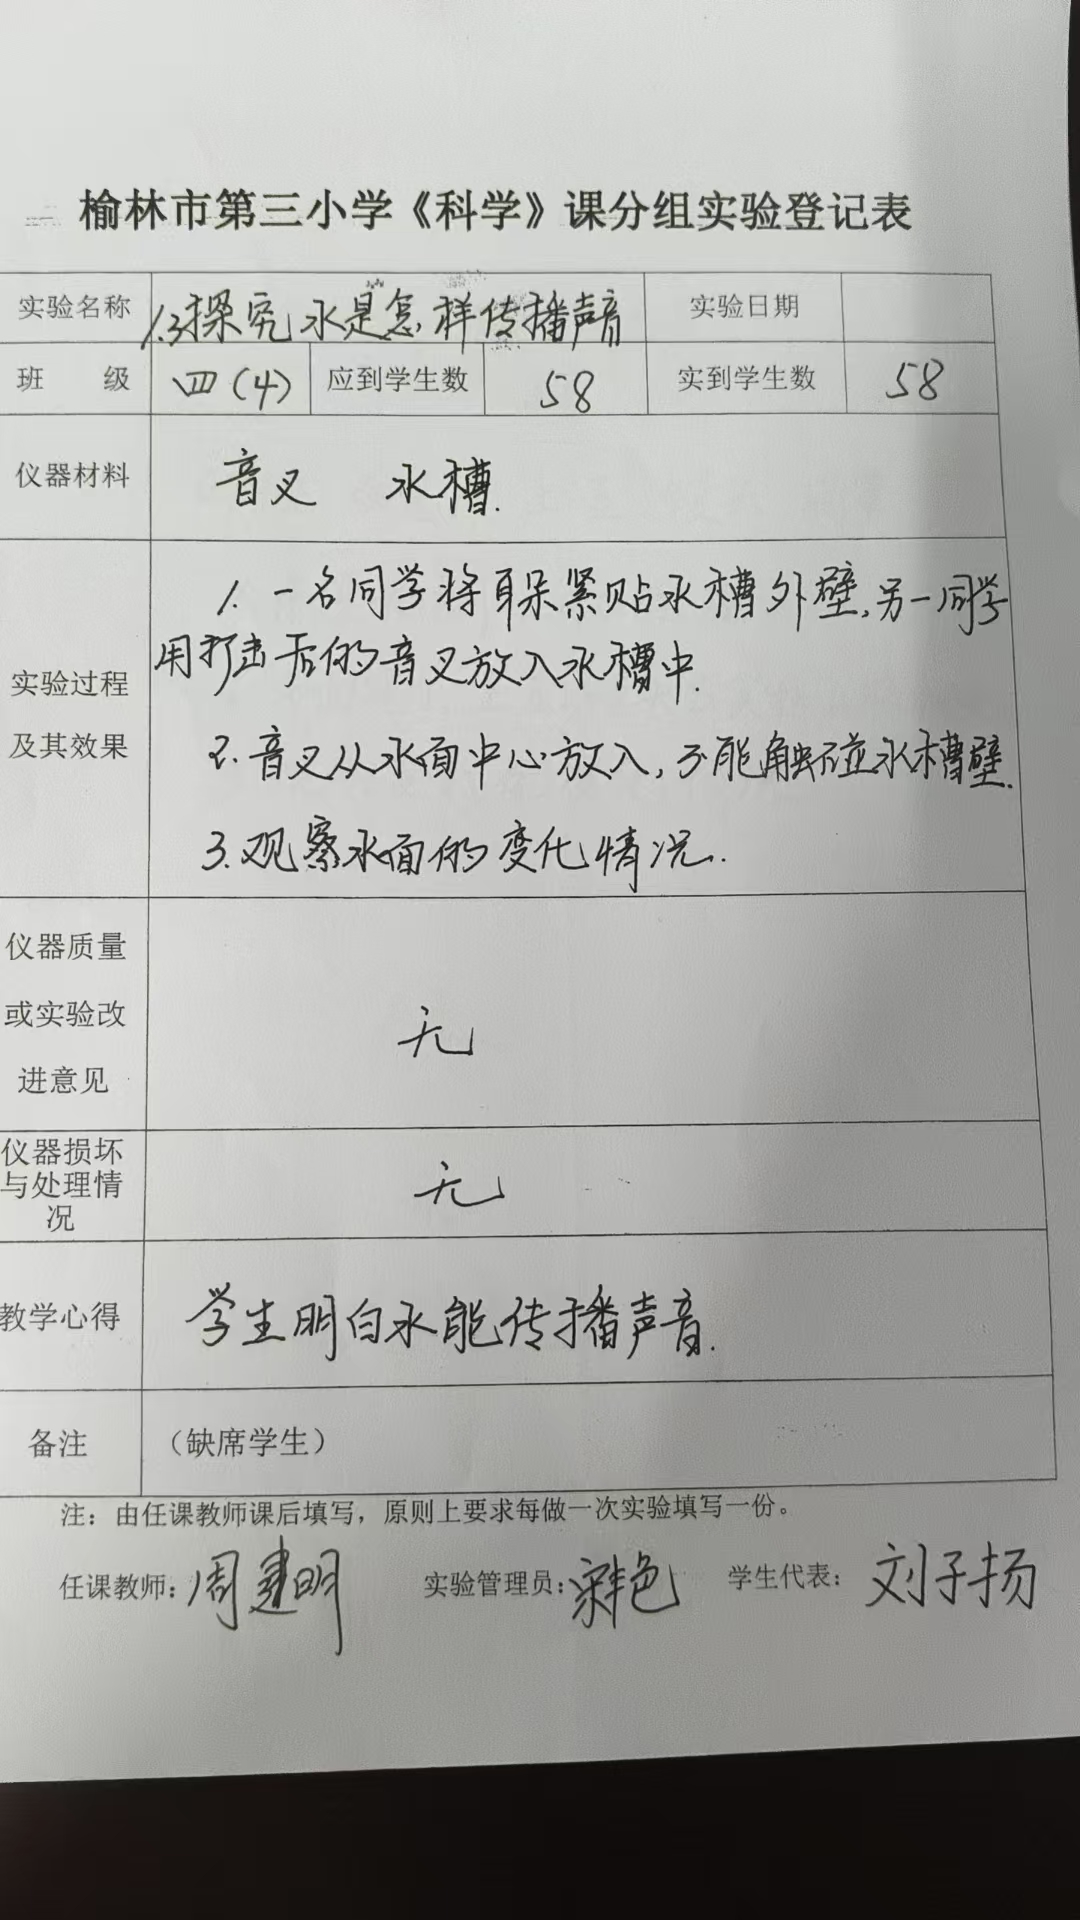 榆林市第三小学《科学》课分组实验登记表
实验名称 1.3探究水是怎样传播声音 实验日期
班 级 四(4) 应到学生数 58 实到学生数 58
仪器材料 音叉 水槽.
1. 一名同学将耳朵紧贴水槽外壁,另一同学
用打击后的音叉放入水槽中.
实验过程
及其效果
2. 音叉从水面中心放入,不能触碰水槽壁.
3. 观察水面的变化情况.
仪器质量
或实验改
进意见
无
仪器损坏
与处理情
况
无
教学心得 学生明白水能传播声音.
备注 (缺席学生)
注:由任课教师课后填写,原则上要求每做一次实验填写一份。
任课教师:周建明 实验管理员: 学生代表:刘子扬